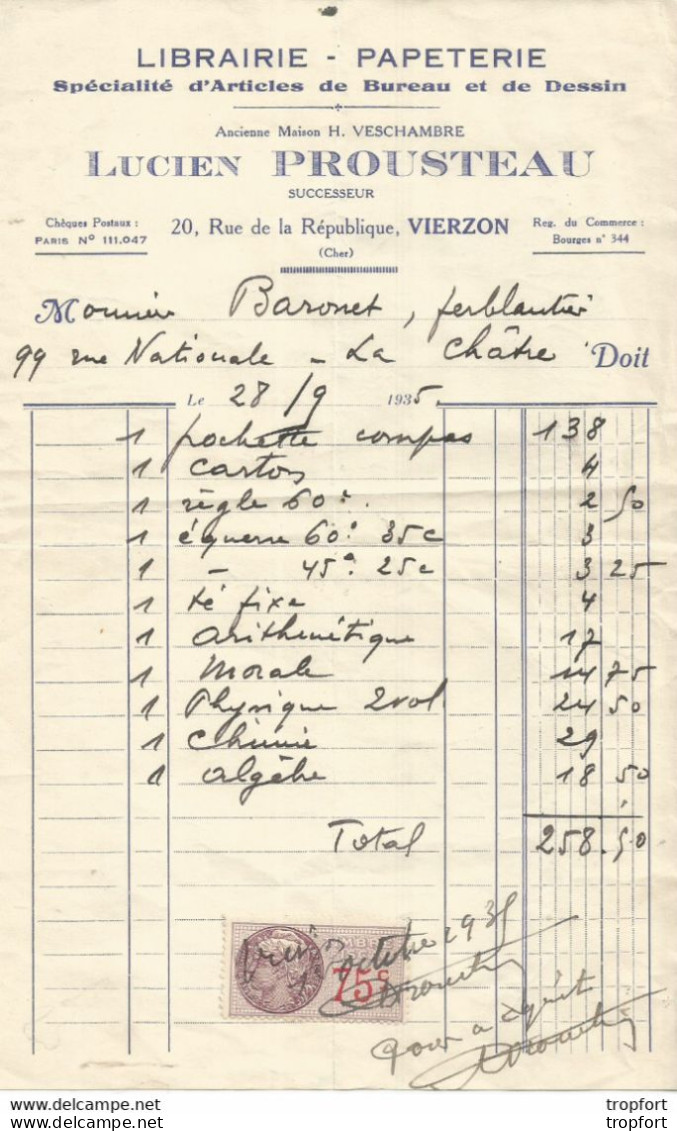 LIBRAIRIE - PAPETERIE
Spécialité d'Articles de Bureau et de Dessin
Ancienne Maison H. VESCHAMBRE
LUCIEN PROUSTEAU
SUCCESSEUR
Chèques Postaux :
PARIS N° 111.047
20, Rue de la République, VIERZON
(Cher)
Reg. du Commerce :
Bourges n° 344
Monsieur Baronet, ferblantier
99 rue Nationale - La Châtre Doit
Le 28/9 1935.
1 pochette compas 138
1 carton 4
1 règle 60c. 2 50
1 équerre 60° 35c 3
1 - 45° 25c 3 25
1 té fixe 4
1 arithmétique 17
1 Morale 14 75
1 Physique 2vol 24 50
1 Chimie 29
1 algèbe 18 50
Total 258.50
octobre 1935
75c
Prousteau
pour acquit
Prousteau
https://www.delcampe.net
tropfort
tropfort